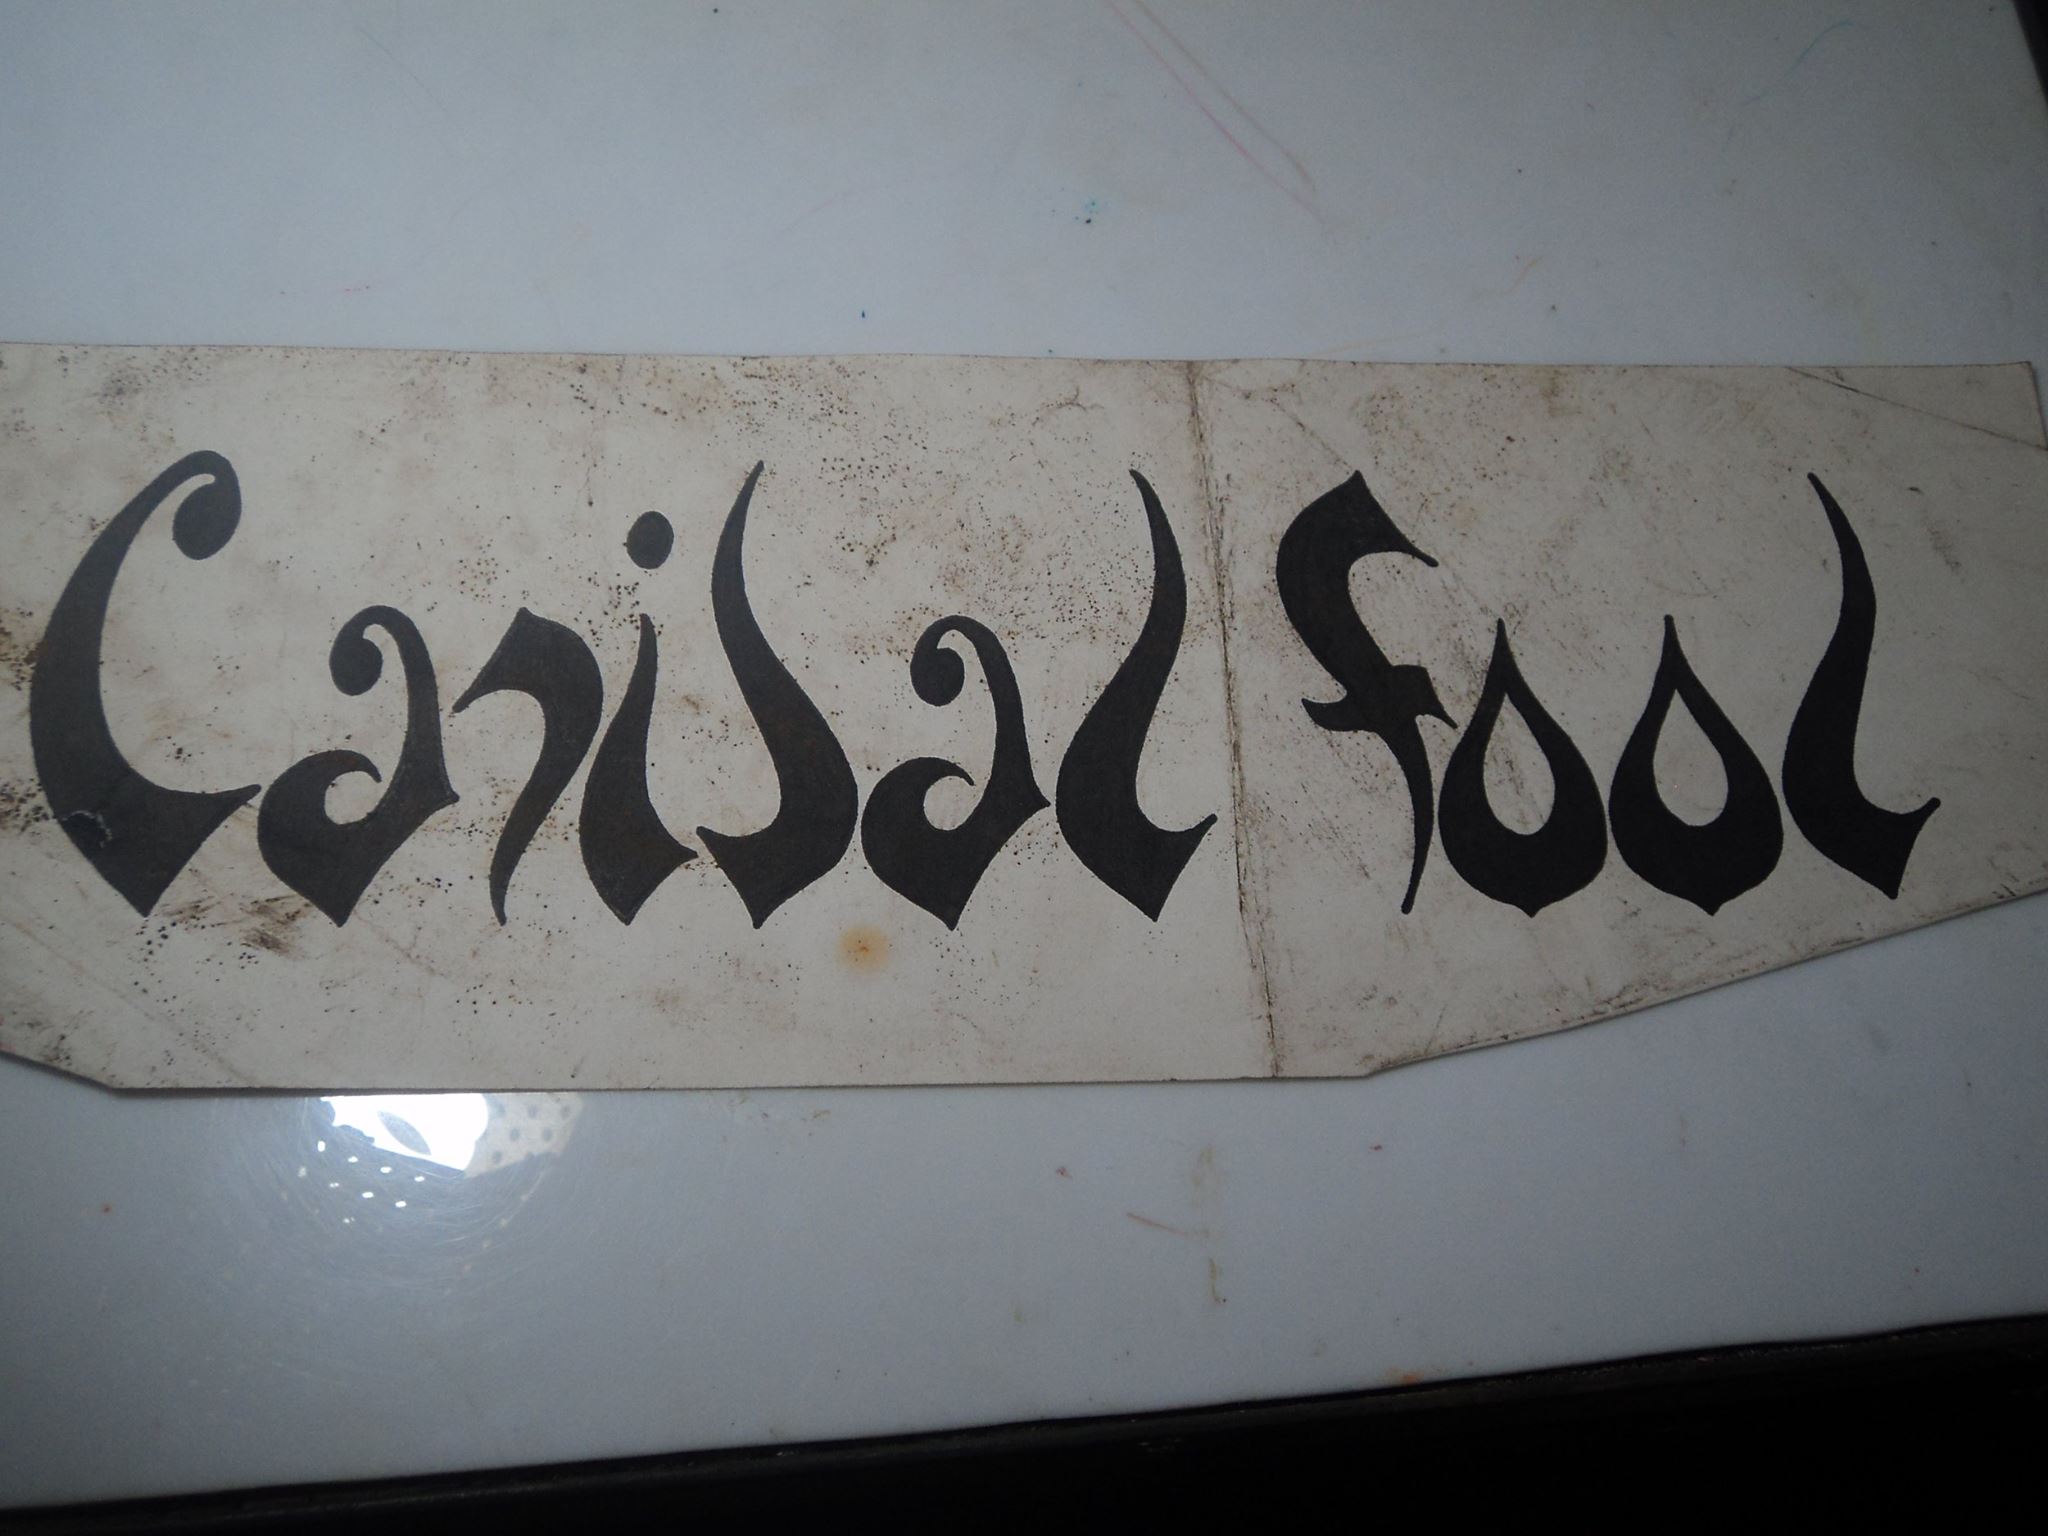 Canibal fool